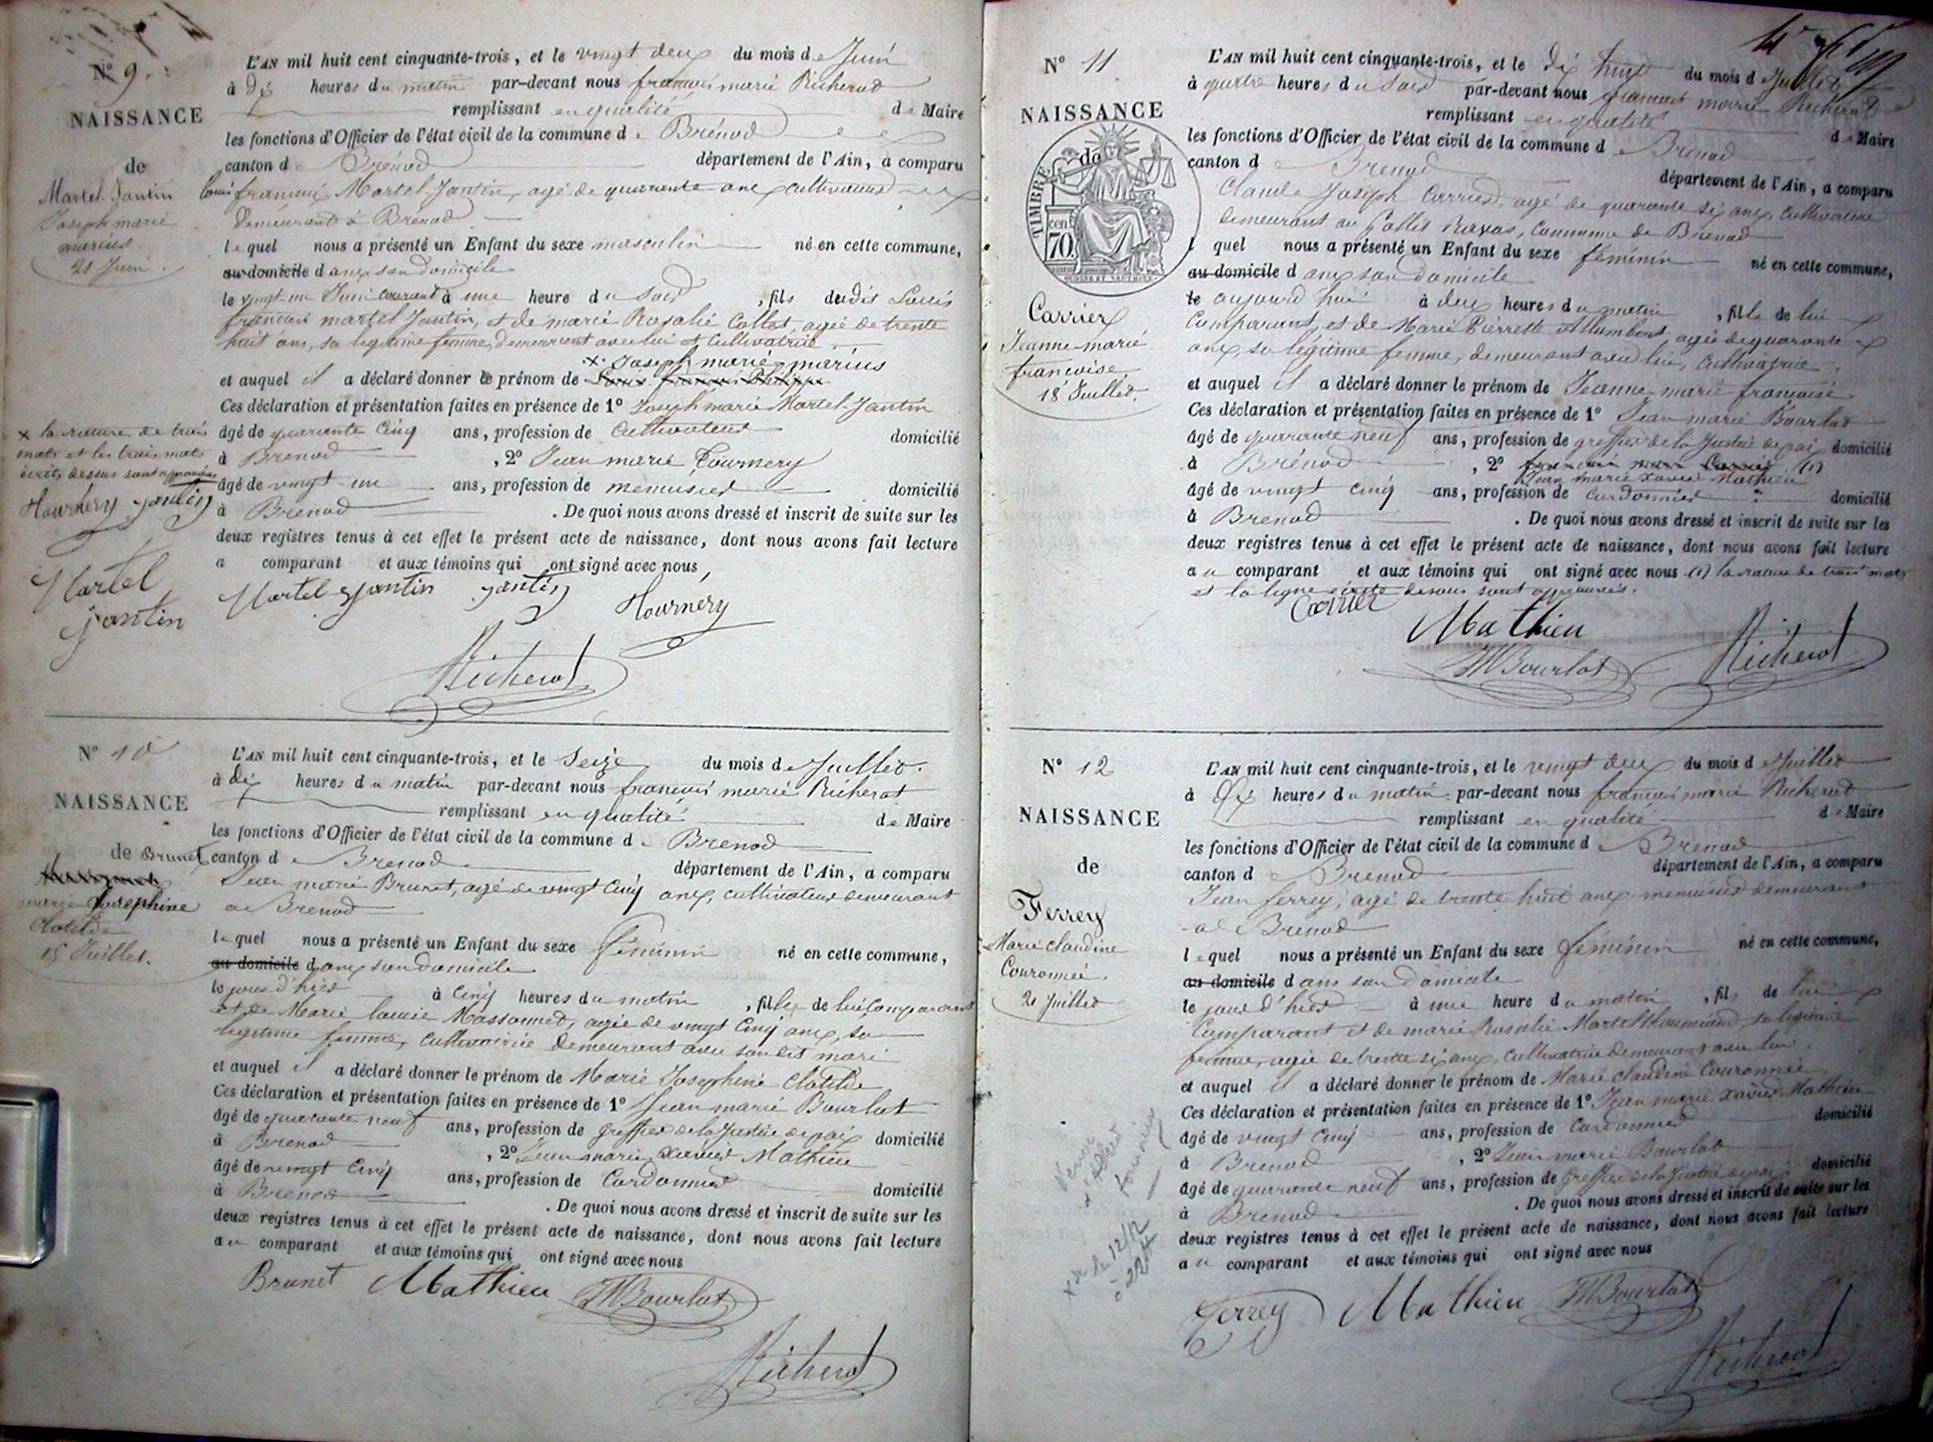 N° 9.
NAISSANCE
de
Martel-Jantin
Joseph marie
marius
21 Juin.
L'AN mil huit cent cinquante-trois, et le vingt deux du mois de Juin
à dix heures du matin par-devant nous francois marie Richerot
remplissant en qualité de Maire
les fonctions d'Officier de l'état civil de la commune de Brénod
canton de Brénod département de l'Ain, a comparu
Louis francois Martel-Jantin, agé de quarante ans cultivateur
demeurant à Brénod
lequel nous a présenté un Enfant du sexe masculin né en cette commune,
au domicile dans son domicile
le vingt-un Juin courant à une heure du soir, fils dudit Louis
francois martel Jantin, et de marie Rosalie Collet, agée de trente
huit ans, sa legitime femme, demeurant avec lui et Cultivatrice
x Joseph marie marius
et auquel il a déclaré donner le prénom de Louis francois Philippe
Ces déclaration et présentation faites en présence de 1° Joseph marie Martel-Jantin
âgé de quarante cinq ans, profession de Cultivateur domicilié
à Brenod, 2° Jean marie Tournery
âgé de vingt un ans, profession de menuisier domicilié
à Brenod. De quoi nous avons dressé et inscrit de suite sur les
deux registres tenus à cet effet le présent acte de naissance, dont nous avons fait lecture
a comparant et aux témoins qui ont signé avec nous,
x la rature de trois
mots et les trois mots
écrits dessus sont approuvés
Tournery Jantin
Martel
Jantin
Martel Jantin Jantin Tournery
Richerot
N° 10
NAISSANCE
de Brunet
marie Josephine
Clotilde
15 Juillet.
L'AN mil huit cent cinquante-trois, et le Seize du mois de Juillet.
à dix heures du matin par-devant nous francois marie Richerot
remplissant en qualité de Maire
les fonctions d'Officier de l'état civil de la commune de Brenod
canton de Brenod département de l'Ain, a comparu
Jean marie Brunet, agé de vingt cinq ans, cultivateur demeurant
a Brenod
lequel nous a présenté un Enfant du sexe féminin né en cette commune,
au domicile dans son domicile
le jour d'hier à cinq heures du matin, fille de lui comparant
et de Marie louise Massonnet, agée de vingt cinq ans, sa
legitime femme, Cultivatrice demeurant avec son dit mari
et auquel il a déclaré donner le prénom de Marie Josephine Clotilde
Ces déclaration et présentation faites en présence de 1° Jean marie Bourlot
âgé de quarante neuf ans, profession de Greffier de la Justice de paix domicilié
à Brenod, 2° Jean marie xavier Mathieu
âgé de vingt cinq ans, profession de Cordonnier domicilié
à Brenod. De quoi nous avons dressé et inscrit de suite sur les
deux registres tenus à cet effet le présent acte de naissance, dont nous avons fait lecture
au comparant et aux témoins qui ont signé avec nous
Brunet Mathieu JM Bourlot
Richerot
N° 11
NAISSANCE
de
TIMBRE
70 cen
Carrier
Jeanne-marie
francoise
18 Juillet.
L'AN mil huit cent cinquante-trois, et le dix huit du mois de Juillet
à quatre heures du soir par-devant nous francois marie Richerot
remplissant en qualité de Maire
les fonctions d'Officier de l'état civil de la commune de Brenod
canton de Brenod département de l'Ain, a comparu
Claude Joseph Carrier, agé de quarante six ans Cultivateur
demeurant au Commune de Brenod
lequel nous a présenté un Enfant du sexe féminin né en cette commune,
au domicile dans son domicile
le aujourd'hui à deux heures du matin, fille de lui
Comparant, et de Marie Pierrette Allumbert agée de quarante
ans, sa légitime femme, demeurant avec lui, Cultivatrice.
et auquel il a déclaré donner le prénom de Jeanne marie francoise
Ces déclaration et présentation faites en présence de 1° Jean marie Bourlot
âgé de quarante neuf ans, profession de greffier de la Justice de paix domicilié
à Brénod, 2° francois marie Carrier (1)
Jean marie xavier Mathieu
âgé de vingt cinq ans, profession de cordonnier domicilié
à Brenod. De quoi nous avons dressé et inscrit de suite sur les
deux registres tenus à cet effet le présent acte de naissance, dont nous avons fait lecture
au comparant et aux témoins qui ont signé avec nous (1) la rature de trois mots
et la ligne écrite dessous sont approuvées.
Carrier
Mathieu
JM Bourlot Richerot
N° 12
NAISSANCE
de
Ferrey
Marie claudine
Couronnée.
21 Juillet
L'AN mil huit cent cinquante-trois, et le vingt deux du mois de Juillet
à dix heures du matin par-devant nous francois marie Richerot
remplissant en qualité de Maire
les fonctions d'Officier de l'état civil de la commune de Brenod
canton de Brenod département de l'Ain, a comparu
Jean ferrey, agé de trente huit ans menuisier demeurant
a Brenod
lequel nous a présenté un Enfant du sexe féminin né en cette commune,
au domicile dans son domicile
le jour d'hier à une heure du matin, fille de lui
Comparant et de marie Rosalie sa legitime
femme, agée de trente six ans, cultivatrice demeurant avec lui.
et auquel il a déclaré donner le prénom de Marie claudine Couronnée
Ces déclaration et présentation faites en présence de 1° Jean marie xavier Mathieu
âgé de vingt cinq ans, profession de Cordonnier domicilié
à Brenod, 2° Jean marie Bourlot
âgé de quarante neuf ans, profession de Greffier de la Justice de paix domicilié
à Brenod. De quoi nous avons dressé et inscrit de suite sur les
deux registres tenus à cet effet le présent acte de naissance, dont nous avons fait lecture
au comparant et aux témoins qui ont signé avec nous
Ferrey Mathieu JM Bourlot
Richerot